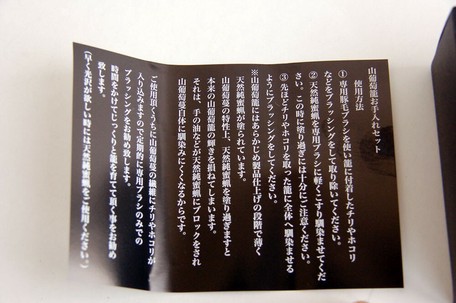 山葡萄籠お手入れセット
使用方法
① 専用豚毛ブラシを使い籠に付着したチリやホコリ
などをブラッシングをして取り除いてください。
② 天然純蜜蝋を専用ブラシに軽くこすり馴染ませてくだ
さい。この時に塗り過ぎには十分にご注意ください。
③ 先ほどチリやホコリを取った籠に全体へ馴染ませる
ようにブラッシングをしてください。
※山葡萄籠にはあらかじめ製品仕上げの段階で薄く
天然純蜜蝋が塗られています。
山葡萄蔓の特性上、天然純蜜蝋を塗り過ぎますと
本来の山葡萄籠の輝きを損ねてしまいます。
それは、手の油などが天然純蜜蝋にブロックをされ
山葡萄蔓自体に馴染みにくくなるからです。
ご使用頂くうちに山葡萄蔓の繊維にチリやホコリが
入り込みますので定期的に専用ブラシのみでの
ブラッシングをお勧め致します。
時間をかけてじっくりと籠を育てて頂く事をお勧め
致します。
(早く光沢が欲しい時には天然純蜜蝋をご使用ください。)